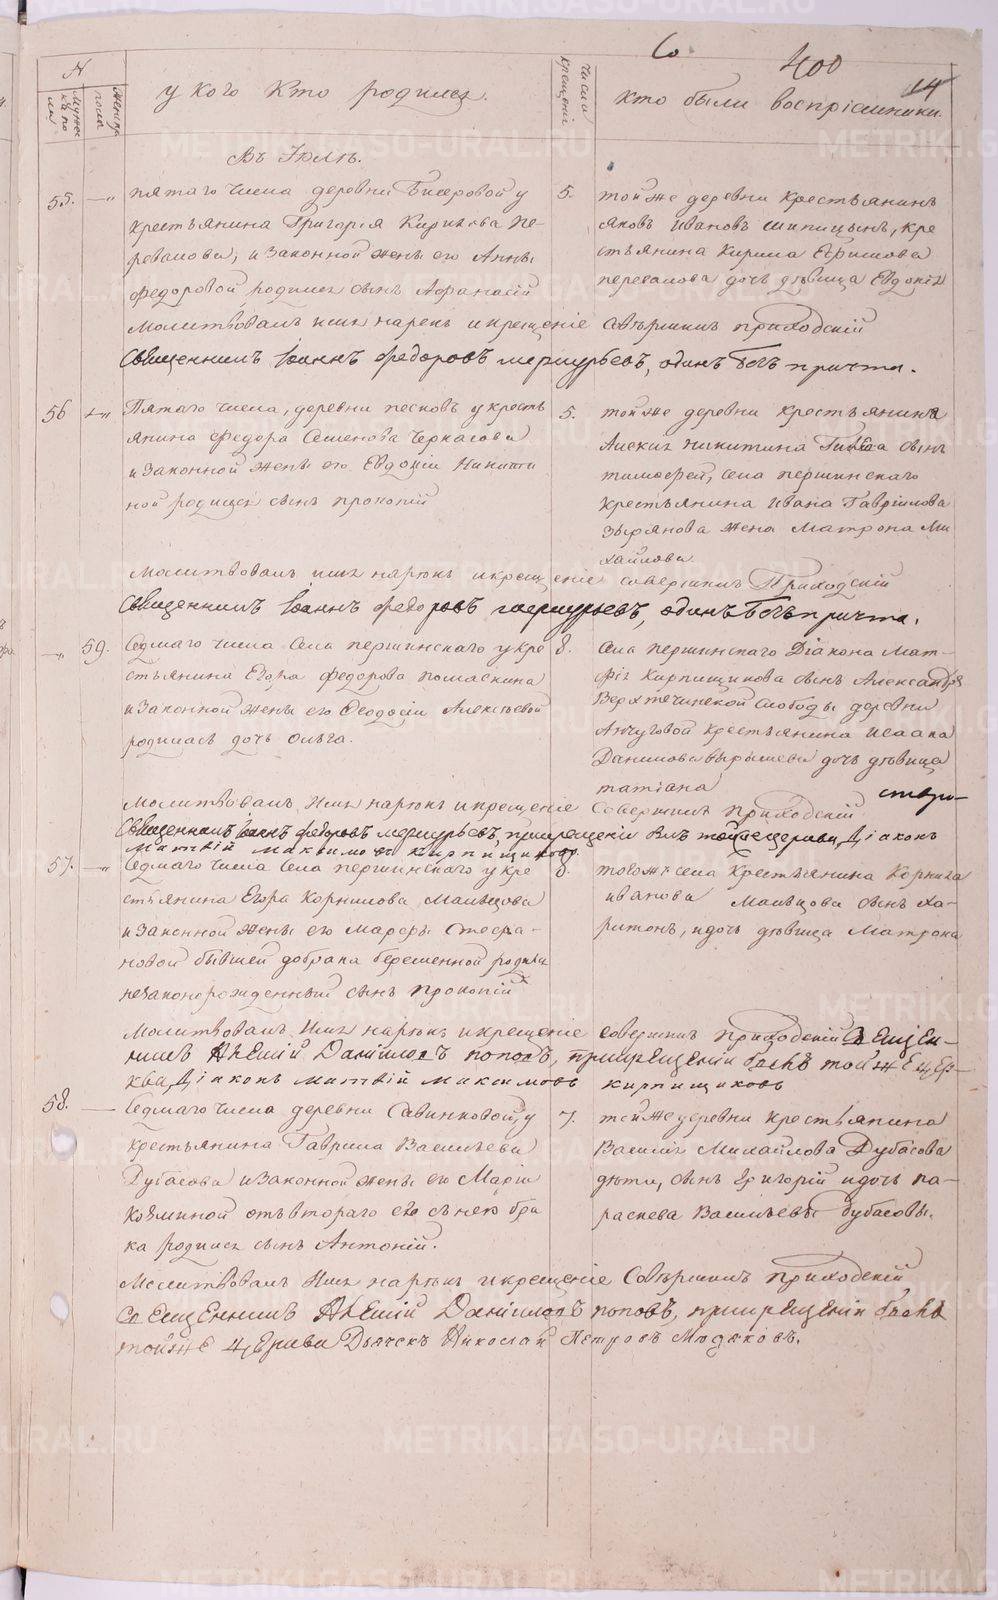 400
14
№
Мужеска пола
Женска пола
у кого кто родился.
число крещенiй
кто были воспрiемники.
Въ Iюлѣ.
55.
пятаго числа деревни Бисеровой у
крестьянина Григорiя Кирилова Пе-
ревалова, и законной жены его Анны
Федоровой родился сынъ Афанасiй
5.
той же деревни крестьянинъ
Яковъ Ивановъ Шипицынъ, кре
стьянина Кирила Ефимова
Перевалова дочь дѣвица Евдокiя
Молитвовалъ имя нарекъ и крещенiе совершилъ приходскiй
священникъ Iоаннъ Федоровъ Меркурьевъ, одинъ безъ причта.
56
Пятаго числа, деревни Песковъ у кресть
янина Федора Семенова Черкасова
и законной жены его Евдокiи Никити
ной родился сынъ Прокопiй
5.
той же деревни крестьянина
Алексия Никитина сынъ
Тимофей, села Першинскаго
крестьянина Ивана Гаврiилова
Зырянова жена Матрона Ми
хайлова
Молитвовалъ имя нарекъ и крещенiе совершилъ Приходскiй
священникъ Iоаннъ Федоровъ Меркурьевъ, одинъ безъ причта.
59.
Седмаго числа села Першинскаго у кре
стьянина Егора Федорова Помаскина
и законной жены его Феодосiи Алексѣевой
родилась дочь Ольга.
8.
села Першинскаго Дiакона Мат-
фiя Кирпищикова сынъ Александръ
Верхтечинской слободы деревни
Анчуговой крестьянина Исаака
Данилова дочь дѣвица
Татiана
Молитвовалъ имя нарекъ и крещенiе совершилъ приходскiй
священникъ Iоаннъ Федоровъ Меркурьевъ, при крещенiи былъ тойже церкви Дiаконъ
Матвiй Максимовъ Кирпищиковъ
57.
Седмаго числа села Першинскаго у кре
стьянина Егора Корнилова Мальцова
и законной жены его Марфы Стефа-
новой бывшей до брака беременной родился
незаконорожденный сынъ Прокопiй
8.
тогожъ села крестьянина Корнила
Иванова Мальцова сынъ Ха-
ритонъ, и дочь дѣвица Матрона
Молитвовалъ имя нарекъ и крещенiе совершилъ приходскiй священ-
никъ Алексiй Данiиловъ Поповъ, при крещенiи былъ тойже цер-
кви Дiаконъ Матвiй Максимовъ Кирпищиковъ
58.
Седмаго числа деревни Савинковой, у
крестьянина Гаврила Васильева
Дубасова и законной жены его Марiи
Козминой отъ втораго его съ нею бра
ка родился сынъ Антонiй.
7.
той же деревни крестьянина
Василья Михайлова Дубасова
дѣти, сынъ Григорiй и дочь Па-
раскева Васильевы Дубасовы.
Молитвовалъ имя нарекъ и крещенiе совершилъ приходскiй
священникъ Алексiй Данiиловъ Поповъ, при крещенiи былъ
тойже церкви Дьячекъ Николай Петровъ Мюдяковъ.